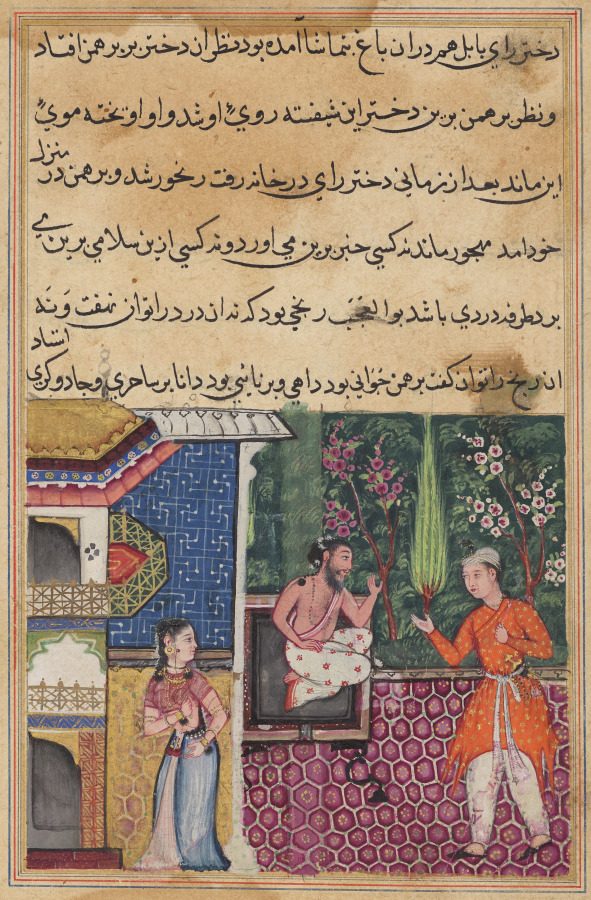 دختر رای بابل هم در ان باغ بتماشا امده بود نظر ان دختر بر برهمن افتاد
و نظر برهمن برین دختر این شیفته روی او شد و او اویخته موی
این ماند بعد از زمانی دختر رای در خانه رفت رنجور شد و برهمن در منزل
خود امد مهجور ماند نه کسی خبر برین می اورد و نه کسی ازین سلامی برین می
برد طرفه دردی باشد بوالعجب رنجی بود که نه ان درد را توان نهفت و نه
ان رنج را توان گفت برهمن جوانی بود داهی و برنایی بود دانا بر ساحری و جادوگری استاد